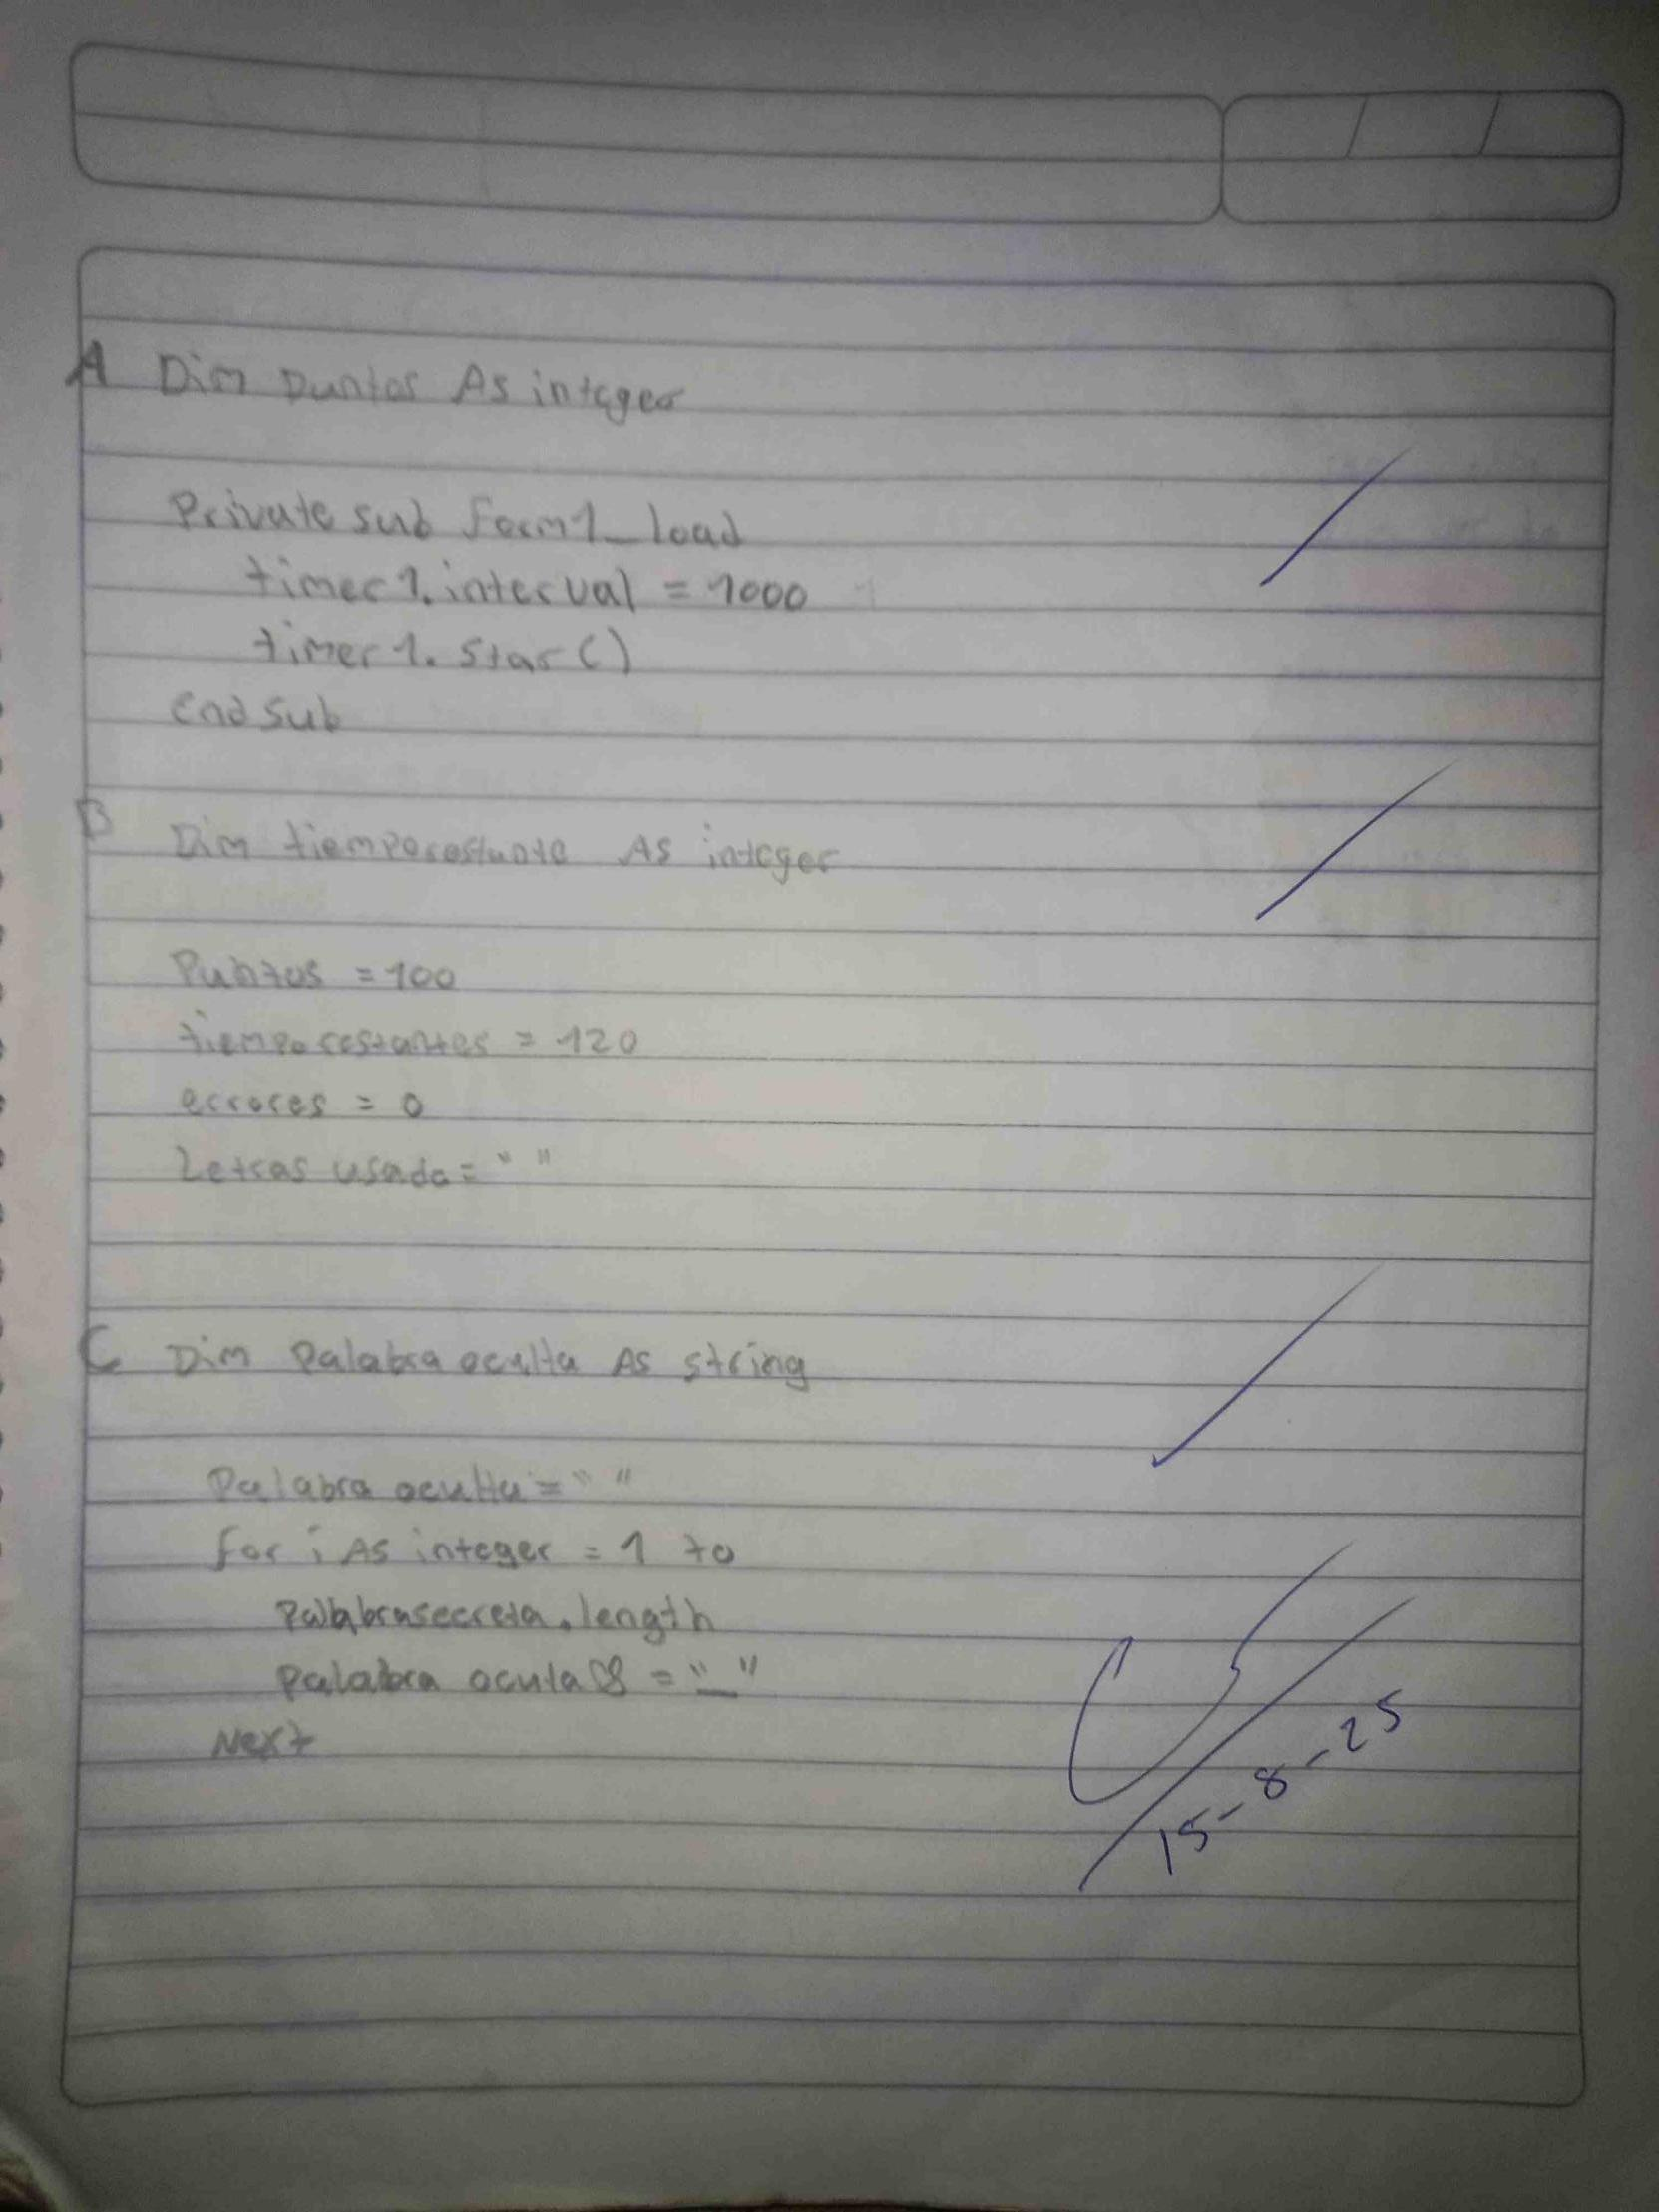 A Dim Puntos As integer
Private sub form1_load
timer1.interval = 1000
timer1.Star()
end sub
B Dim tiemporestante As integer
Puntos = 100
tiemporestantes = 120
errores = 0
Letras usada = " "
C Dim Palabra oculta As string
Palabra oculta = " "
for i As integer = 1 to
Palabrasecreta.length
Palabra oculta & = "_"
Next
15-8-25